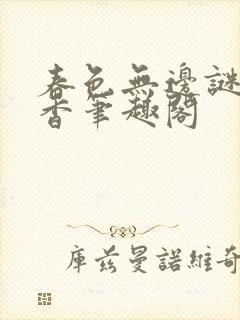 春色無邊謎
香筆趣閣
庫茲曼諾維奇